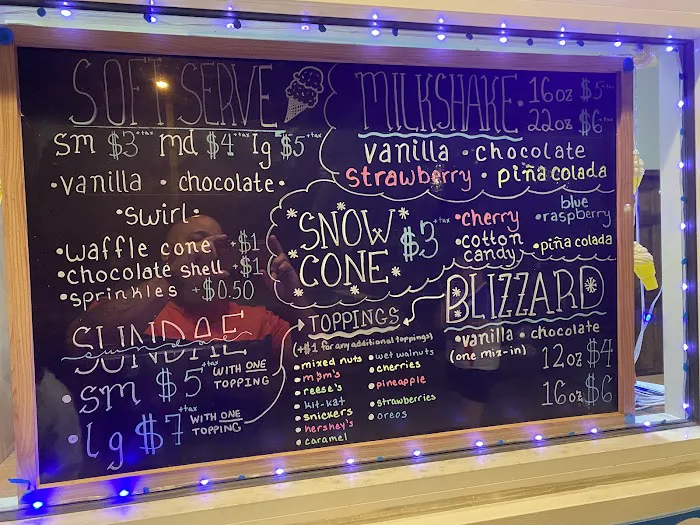 SOFT SERVE
sm $3 +tax md $4 +tax lg $5 +tax
•vanilla • chocolate•
•swirl•
•waffle cone +$1
•chocolate shell +$1
•sprinkles +$0.50
SUNDAE
•sm $5 +tax WITH ONE TOPPING
•lg $7 +tax WITH ONE TOPPING
MILKSHAKE• 16oz $5 +tax
22oz $6 +tax
vanilla • chocolate
strawberry • piña colada
SNOW CONE $3 +tax
•cherry
•blue raspberry
•cotton candy
•piña colada
TOPPINGS
(+$1 for any additional toppings)
•mixed nuts
•m&m's
•reese's
•kit-kat
•snickers
•hershey's
•caramel
•wet walnuts
•cherries
•pineapple
•strawberries
•oreos
BLIZZARD
•vanilla • chocolate
(one mix-in)
12oz $4
16oz $6